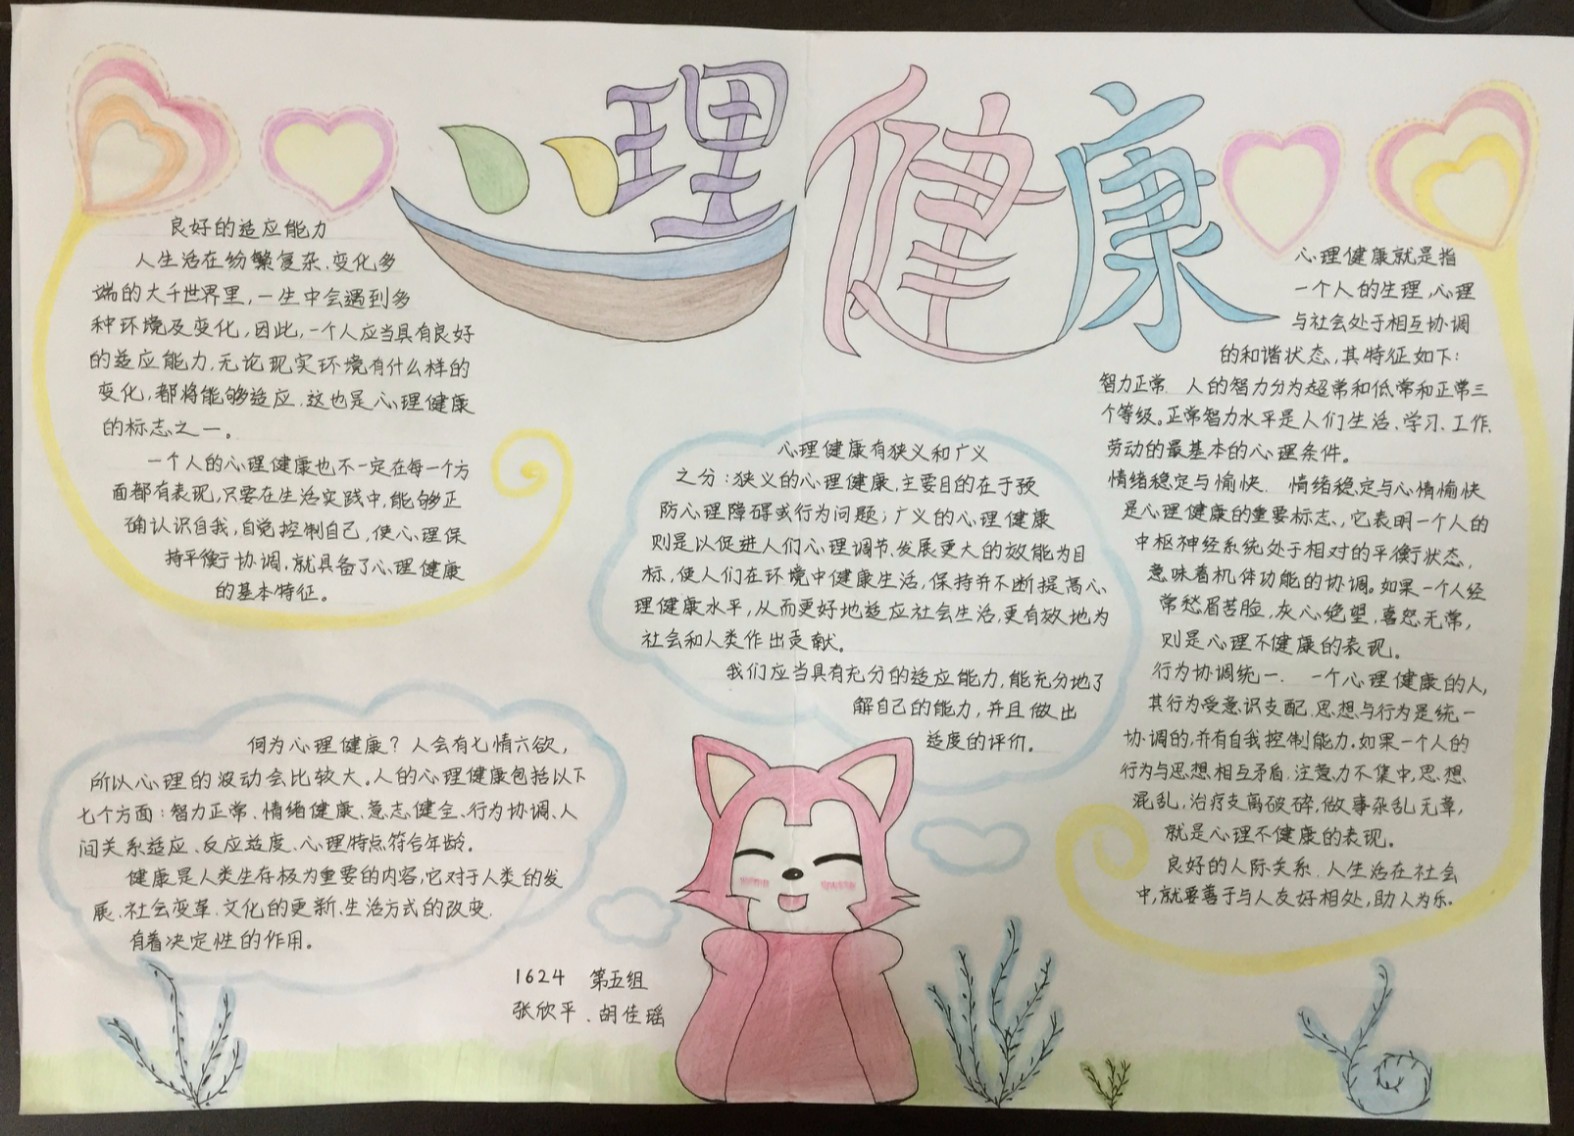 心理健康
良好的适应能力
人生活在纷繁复杂、变化多
端的大千世界里，一生中会遇到多
种环境及变化，因此，一个人应当具有良好
的适应能力，无论现实环境有什么样的
变化，都将能够适应，这也是心理健康
的标志之一。
一个人的心理健康也不一定在每一个方
面都有表现，只要在生活实践中，能够正
确认识自我，自觉控制自己，使心理保
持平衡协调，就具备了心理健康
的基本特征。
何为心理健康？人会有七情六欲，
所以心理的波动会比较大。人的心理健康包括以下
七个方面：智力正常、情绪健康、意志健全、行为协调、人
间关系适应、反应适度、心理特点符合年龄。
健康是人类生存极为重要的内容，它对于人类的发
展、社会变革、文化的更新、生活方式的改变，
有着决定性的作用。
心理健康有狭义和广义
之分：狭义的心理健康，主要目的在于预
防心理障碍或行为问题；广义的心理健康
则是以促进人们心理调节、发展更大的效能为目
标，使人们在环境中健康生活，保持并不断提高心
理健康水平，从而更好地适应社会生活，更有效地为
社会和人类作出贡献。
我们应当具有充分的适应能力，能充分地了
解自己的能力，并且做出
适度的评价。
心理健康就是指
一个人的生理、心理
与社会处于相互协调
的和谐状态，其特征如下：
智力正常 人的智力分为超常和低常和正常三
个等级。正常智力水平是人们生活、学习、工作、
劳动的最基本的心理条件。
情绪稳定与愉快 情绪稳定与心情愉快
是心理健康的重要标志，它表明一个人的
中枢神经系统处于相对的平衡状态，
意味着机体功能的协调。如果一个人经
常愁眉苦脸，灰心绝望，喜怒无常，
则是心理不健康的表现。
行为协调统一. 一个心理健康的人，
其行为受意识支配，思想与行为是统一
协调的，并有自我控制能力。如果一个人的
行为与思想相互矛盾，注意力不集中，思想
混乱，语言支离破碎，做事杂乱无章，
就是心理不健康的表现。
良好的人际关系. 人生活在社会
中，就要善于与人友好相处，助人为乐。
1624 第五组
张欣平、胡佳瑶